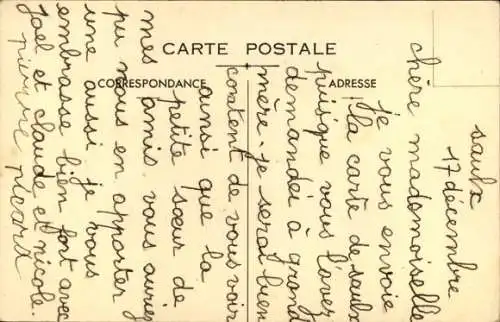 CARTE POSTALE
CORRESPONDANCE
ADRESSE
saulx
17 décembre
chère mademoiselle
je vous envoie
la carte de saulx
puisque vous l'avez
demandéi à grand
mère. je serai bien
content de vous voir
ainsi que la
petite sœur de
mes amis vous auriez
pu nous en apporter
une aussi je vous
embrasse bien fort avec
Jael et claude et nicole.
pierre picard